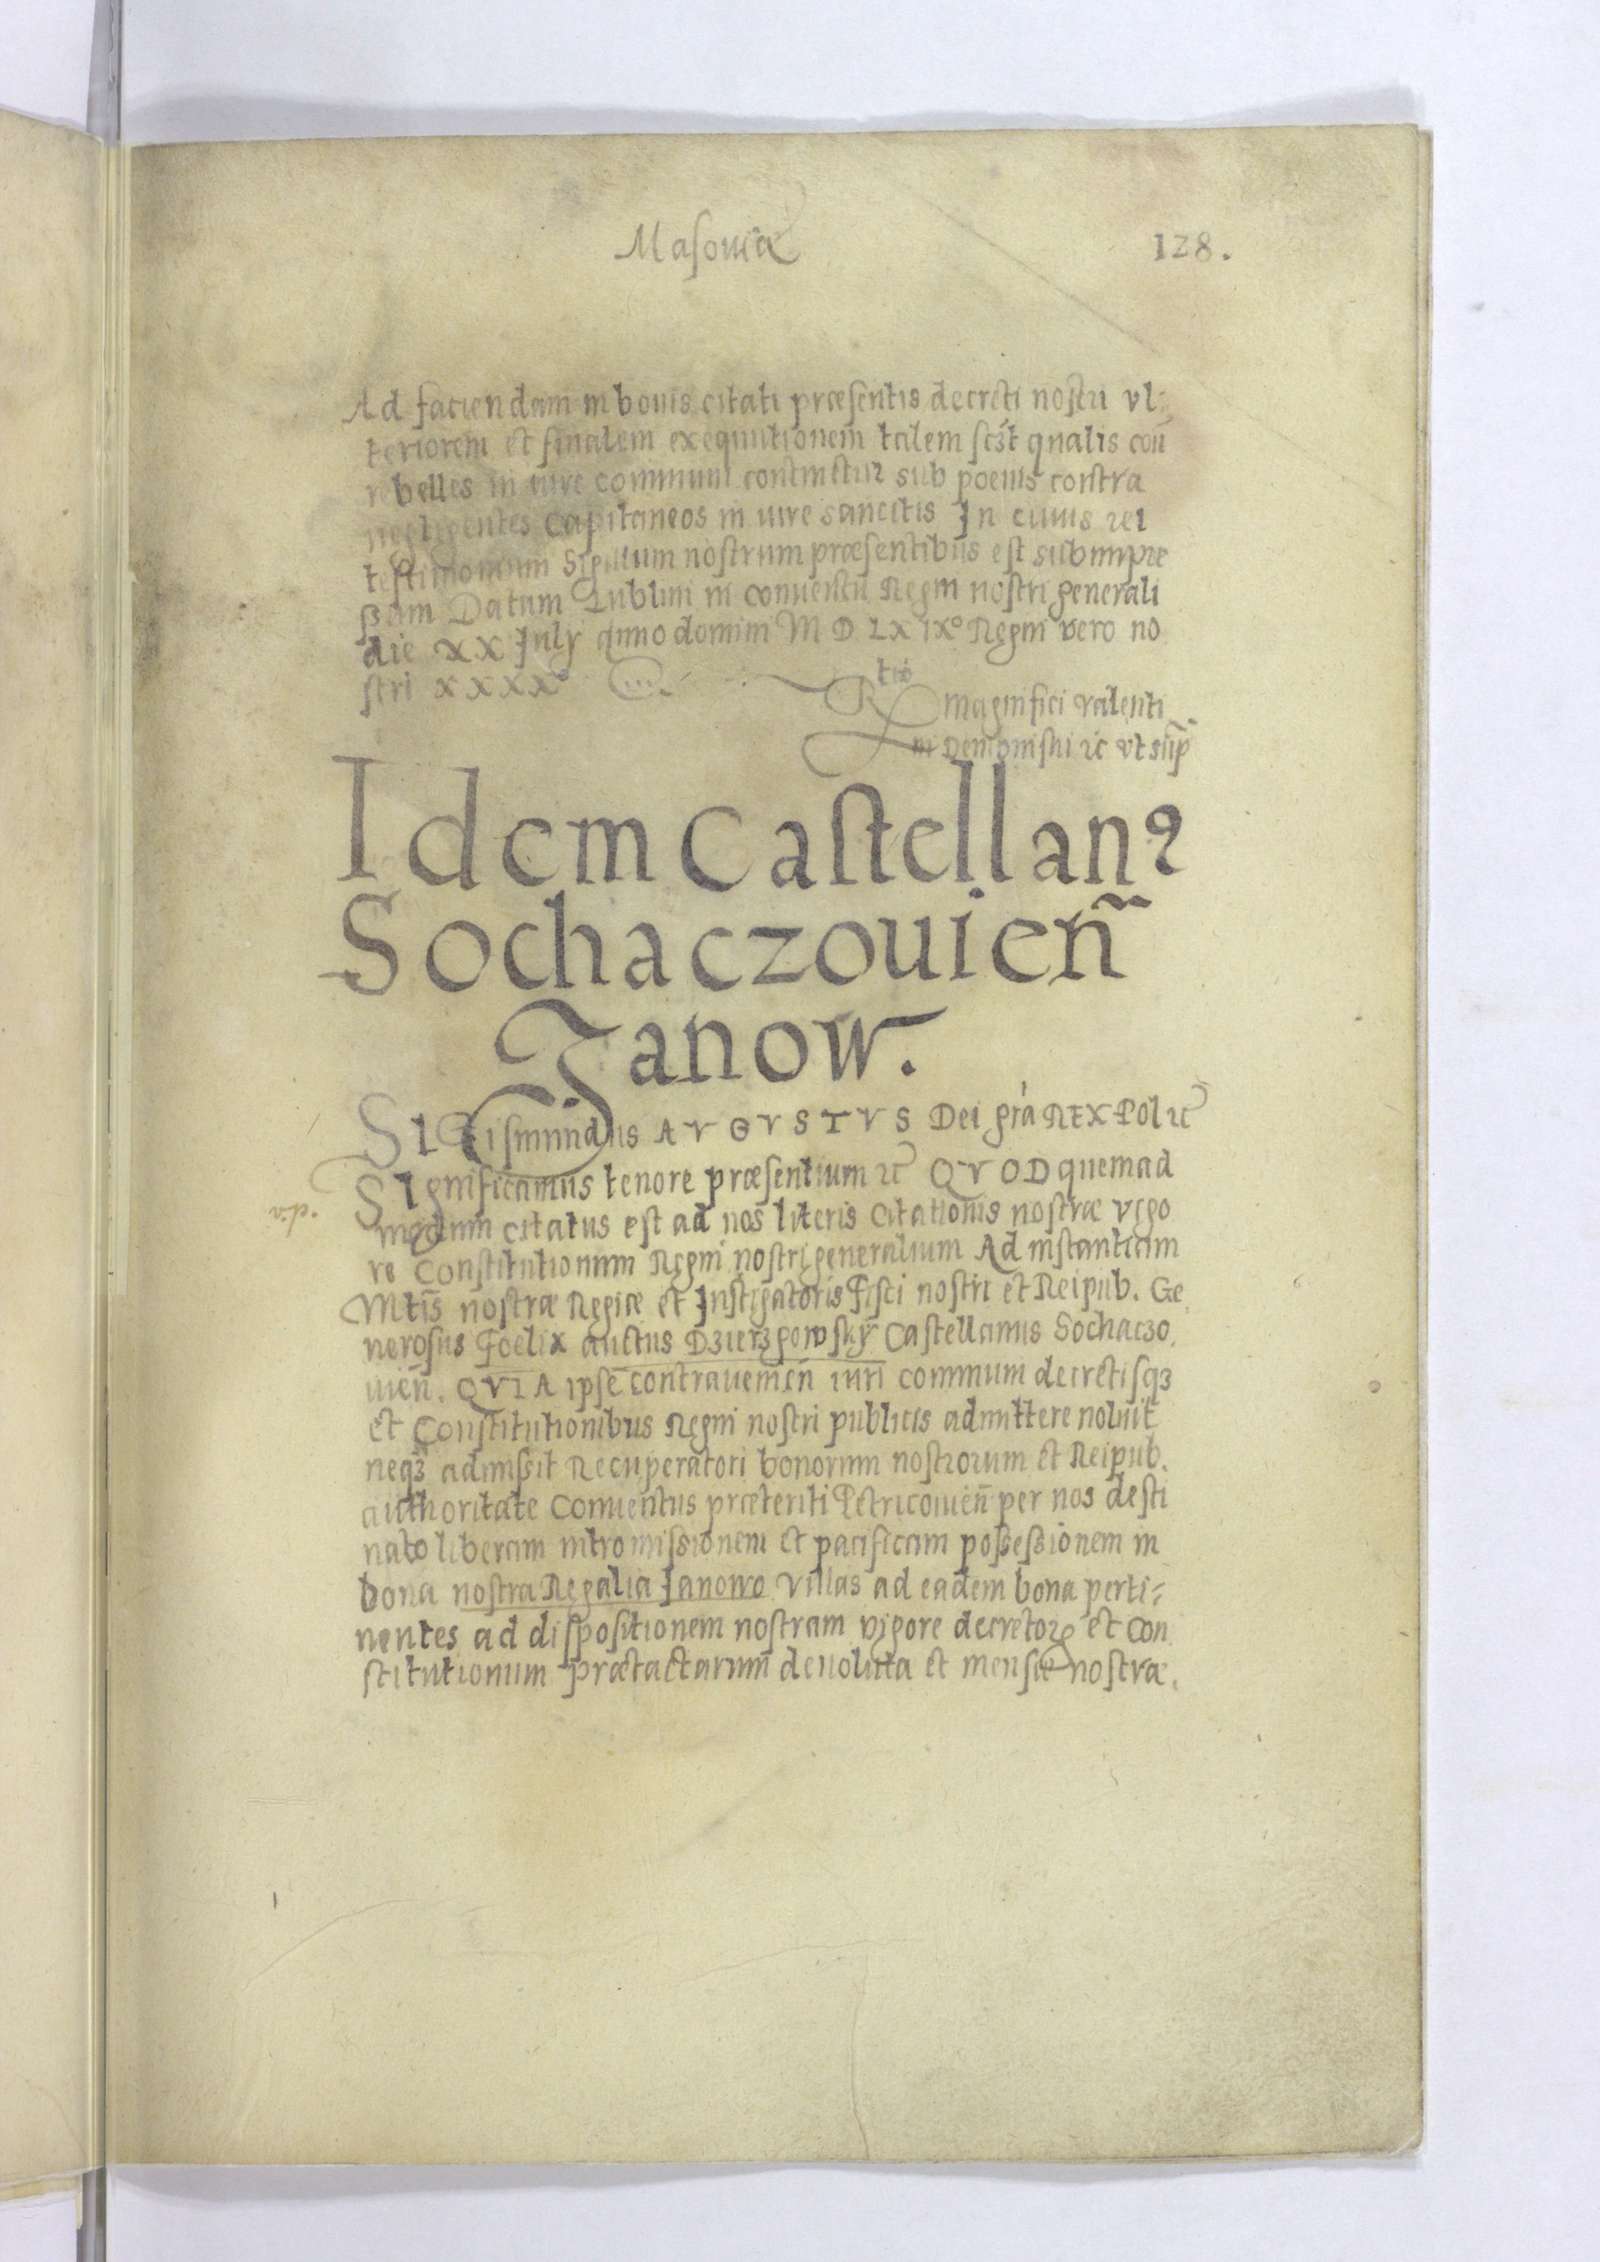 Masouia 128.
Ad faciendam in bonis citati præsentis decreti nostri vl:
teriorem et finalem exequutionem talem sc3t qualis con
rebelles in iure communi continetur sub poenis contra
negligentes Capitaneos in iure sancitis In cuius rei
testimonium Sigillum nostrum præsentibus est subimpre
ßum Datum Lublini in conuentu Regni nostri generali
die XX July anno domini M D LX IX° Regni vero no
stri XXXX°
R tio Magnifici Valenti
ni Dembinski ꝛc vt sup̃
Idem Castellanꝰ
Sochaczouień
Janow.
SIGismundus AVGVSTVS Dei grã REX Pol ꝛc
SIgnificamus tenore præsentium ꝛc QVOD quemad
modum citatus est ad nos literis Citationis nostræ vigo
re Constitutionum Regni nostri generalium Ad instantiam
Mtis̃ nostræ Regiæ et Instigatoris Fisci nostri et Reipub. Ge
nerosus Foelix auctus Dzierzgowsky Castellanus Sochaczo
uien̄. QVIA ipse contraueniẽn iuri communi decretisqꝫ
et Constitutionibus Regni nostri publicis admittere noluit
neqꝫ admißit Recuperatori bonorum nostrorum et Reipub.
authoritate Conuentus præteriti Petricouien̄ per nos desti
nato liberam intromissionem et pacificam possessionem in
bona nostra Regalia Janowo villas ad eadem bona perti⸗
nentes ad dispositionem nostram vigore decretoꝝ et Con
stitutionum prætactarum deuoluta et mensæ nostræ.